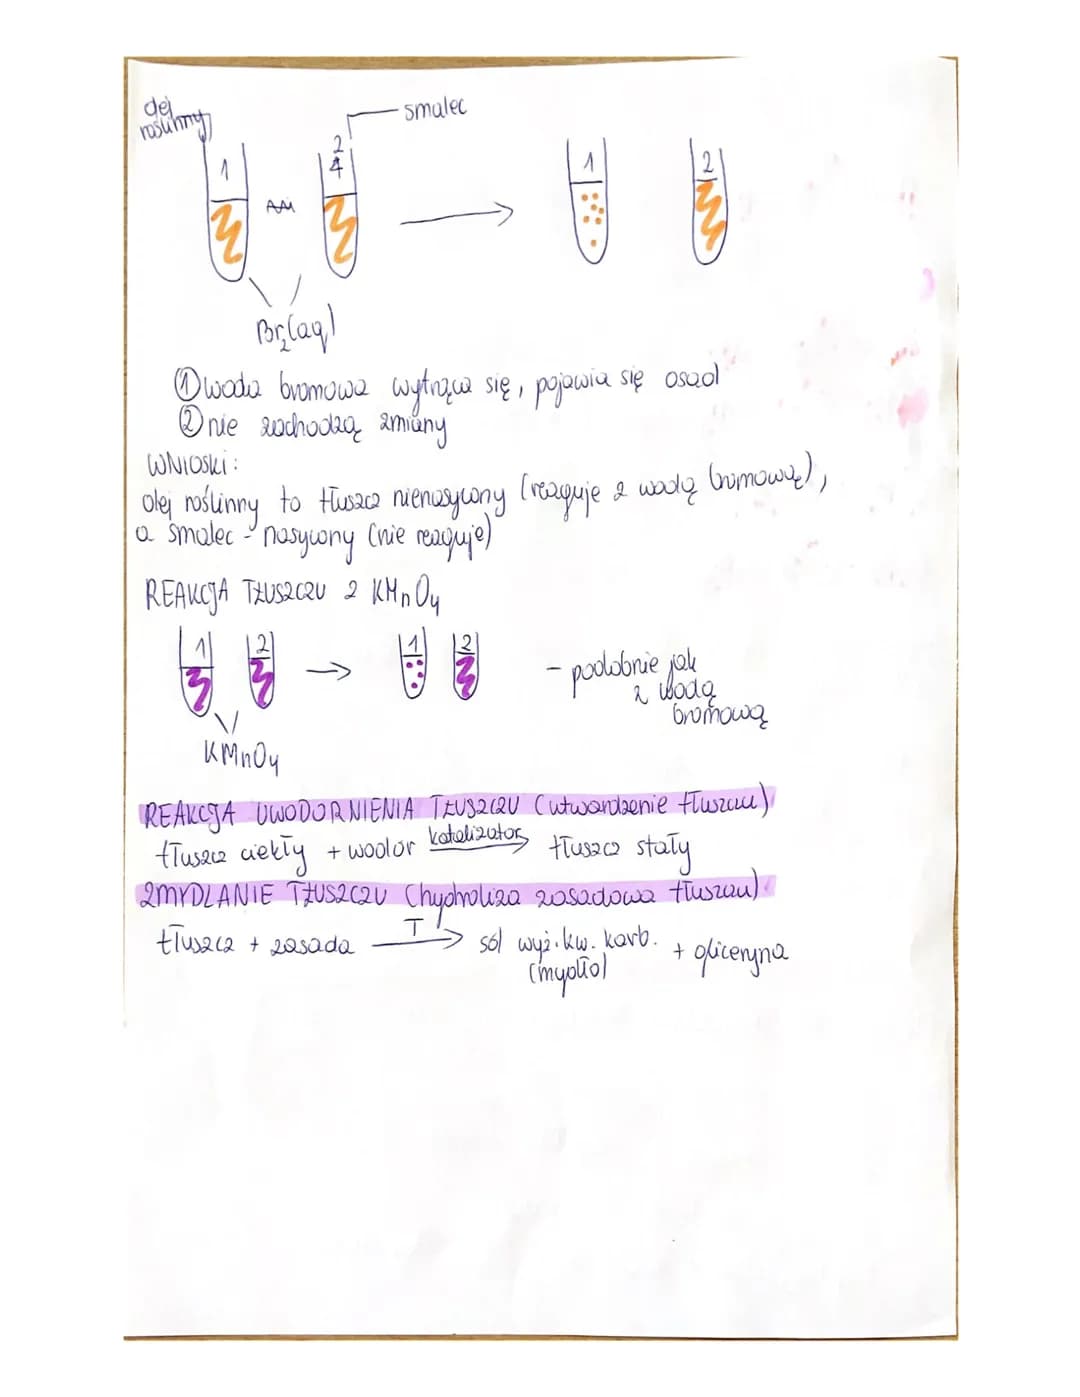 olej
roślinny
smalec
1
2
4
1
2
Br₂(aq)
① woda bromowa wytrąca się, pojawia się osad
② nie zachodzą zmiany
WNIOSKI:
Olej roślinny to tłuszcz nienasycony (reaguje z wodą bromową),
a smalec - nasycony (nie reaguje)
REAKCJA TŁUSZCZU Z KMnO₄
1 2 → 1 2
- podobnie jak
z wodą
bromową
KMnO₄
REAKCJA UWODORNIENIA TŁUSZCZU (utwardzenie tłuszczu)
tłuszcz ciekły + wodór katalizator → tłuszcz stały
ZMYDLANIE TŁUSZCZU (hydroliza zasadowa tłuszczu)
tłuszcz + zasada T → sól wyż. kw. karb. + gliceryna
(mydło)